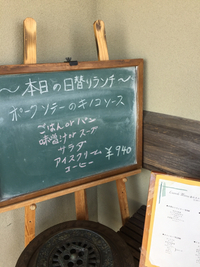 ～本日の日替りランチ～
ポークソテーのキノコソース
ごはん or パン
味噌汁 or スープ
サラダ
アイスクリーム ￥940
コーヒー